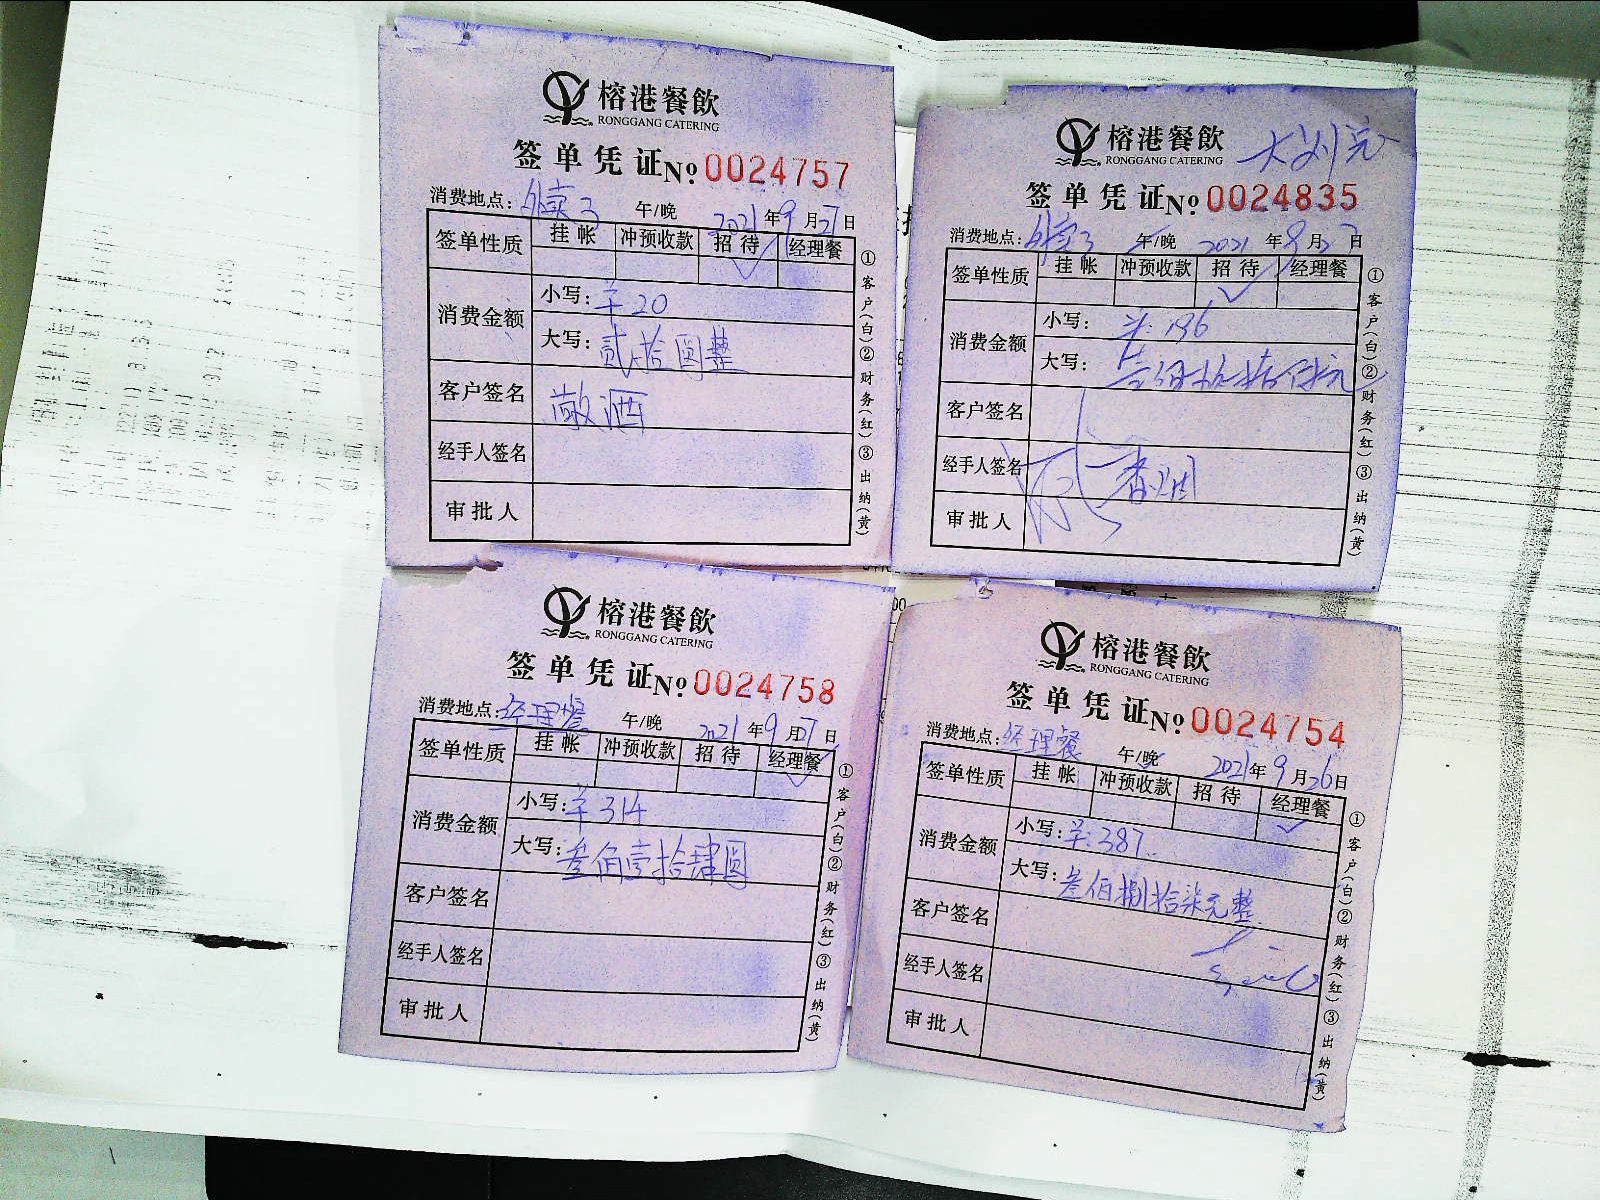 榕港餐飲
RONGGANG CATERING
签单凭证 No 0024757
消费地点：外卖3 午/晚 2021年9月27日
签单性质 挂帐 冲预收款 招待 经理餐
消费金额 小写：羊20
大写：贰拾圆整
客户签名 敬酒
经手人签名
审批人
①客户(白)②财务(红)③出纳(黄)
榕港餐飲
RONGGANG CATERING
签单凭证 No 0024835
消费地点：外卖3 午/晚 2021年9月27日
签单性质 挂帐 冲预收款 招待 经理餐
消费金额 小写：
大写：
客户签名
经手人签名
审批人
①客户(白)②财务(红)③出纳(黄)
榕港餐飲
RONGGANG CATERING
签单凭证 No 0024758
消费地点：经理餐 午/晚 2021年9月27日
签单性质 挂帐 冲预收款 招待 经理餐
消费金额 小写：羊314
大写：叁佰壹拾肆圆
客户签名
经手人签名
审批人
①客户(白)②财务(红)③出纳(黄)
榕港餐飲
RONGGANG CATERING
签单凭证 No 0024754
消费地点：经理餐 午/晚 2021年9月26日
签单性质 挂帐 冲预收款 招待 经理餐
消费金额 小写：羊:387
大写：叁佰捌拾柒元整
客户签名
经手人签名
审批人
①客户(白)②财务(红)③出纳(黄)